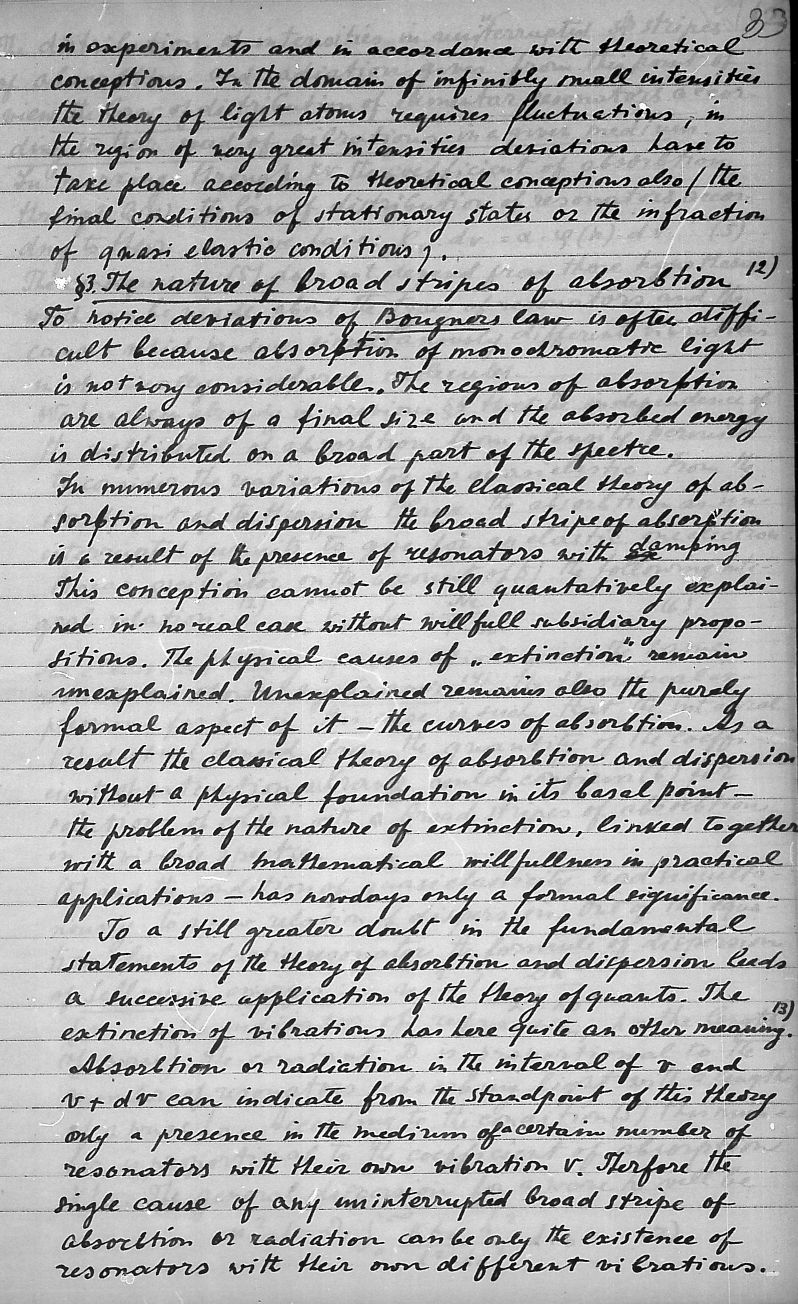 33
in experiments and in accordance with theoretical
conceptions. In the domain of infinitly small intensities
the theory of light atoms requires fluctuations, in
the region of very great intensities deviations have to
take place according to theoretical conceptions also (the
final conditions of stationary states or the infraction
of quasi elastic conditions).
§3. The nature of broad stripes of absorbtion 12)
To notice deviations of Bouguers law is often diffi-
cult because absorption of monochromatic light
is not very considerable. The regions of absorption
are always of a final size and the absorbed energy
is distributed on a broad part of the spectre.
In numerous variations of the classical theory of ab-
sorption and dispersion the broad stripe of absorption
is a result of the presence of resonators with damping
This conception cannot be still quantatively explai-
ned in no real case without willfull subsidiary propo-
sitions. The physical causes of „extinction" remain
unexplained. Unexplained remains also the purely
formal aspect of it – the curves of absorbtion. As a
result the classical theory of absorbtion and dispersion
without a physical foundation in its basal point –
the problem of the nature of extinction, linked together
with a broad mathematical willfullness in practical
applications – has nowdays only a formal significance.
To a still greater doubt in the fundamental
statements of the theory of absorbtion and dispersion leads
a successive application of the theory of quants. The
extinction of vibrations has here quite an other meaning. 13)
Absorbtion or radiation in the interval of v and
v + dv can indicate from the standpoint of this theory
only a presence in the medium of a certain number of
resonators with their own vibration v. Therfore the
single cause of any uninterrupted broad stripe of
absorbtion or radiation can be only the existence of
resonators with their own different vibrations.